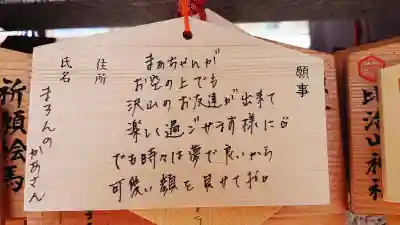 願事
まあちゃんが
お空の上でも
沢山のお友達が出来て
楽しく過ごせます様に
でも時々は夢で良いから
可愛い顔を見せてね
住所
氏名
まろんの
かあさん
祈願絵馬
比治山神社